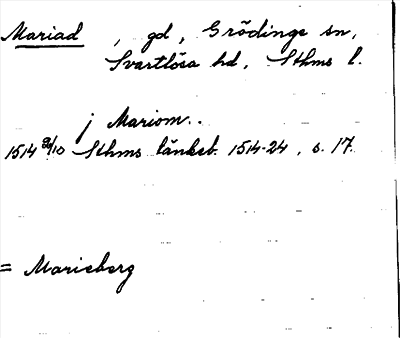 Mariad , gd , Grödinge sn,
Svartlösa hd, Sthms l.
j Mariom..
1514 9/10 Sthms tänkeb. 1514-24, s. 17.
= Marieberg